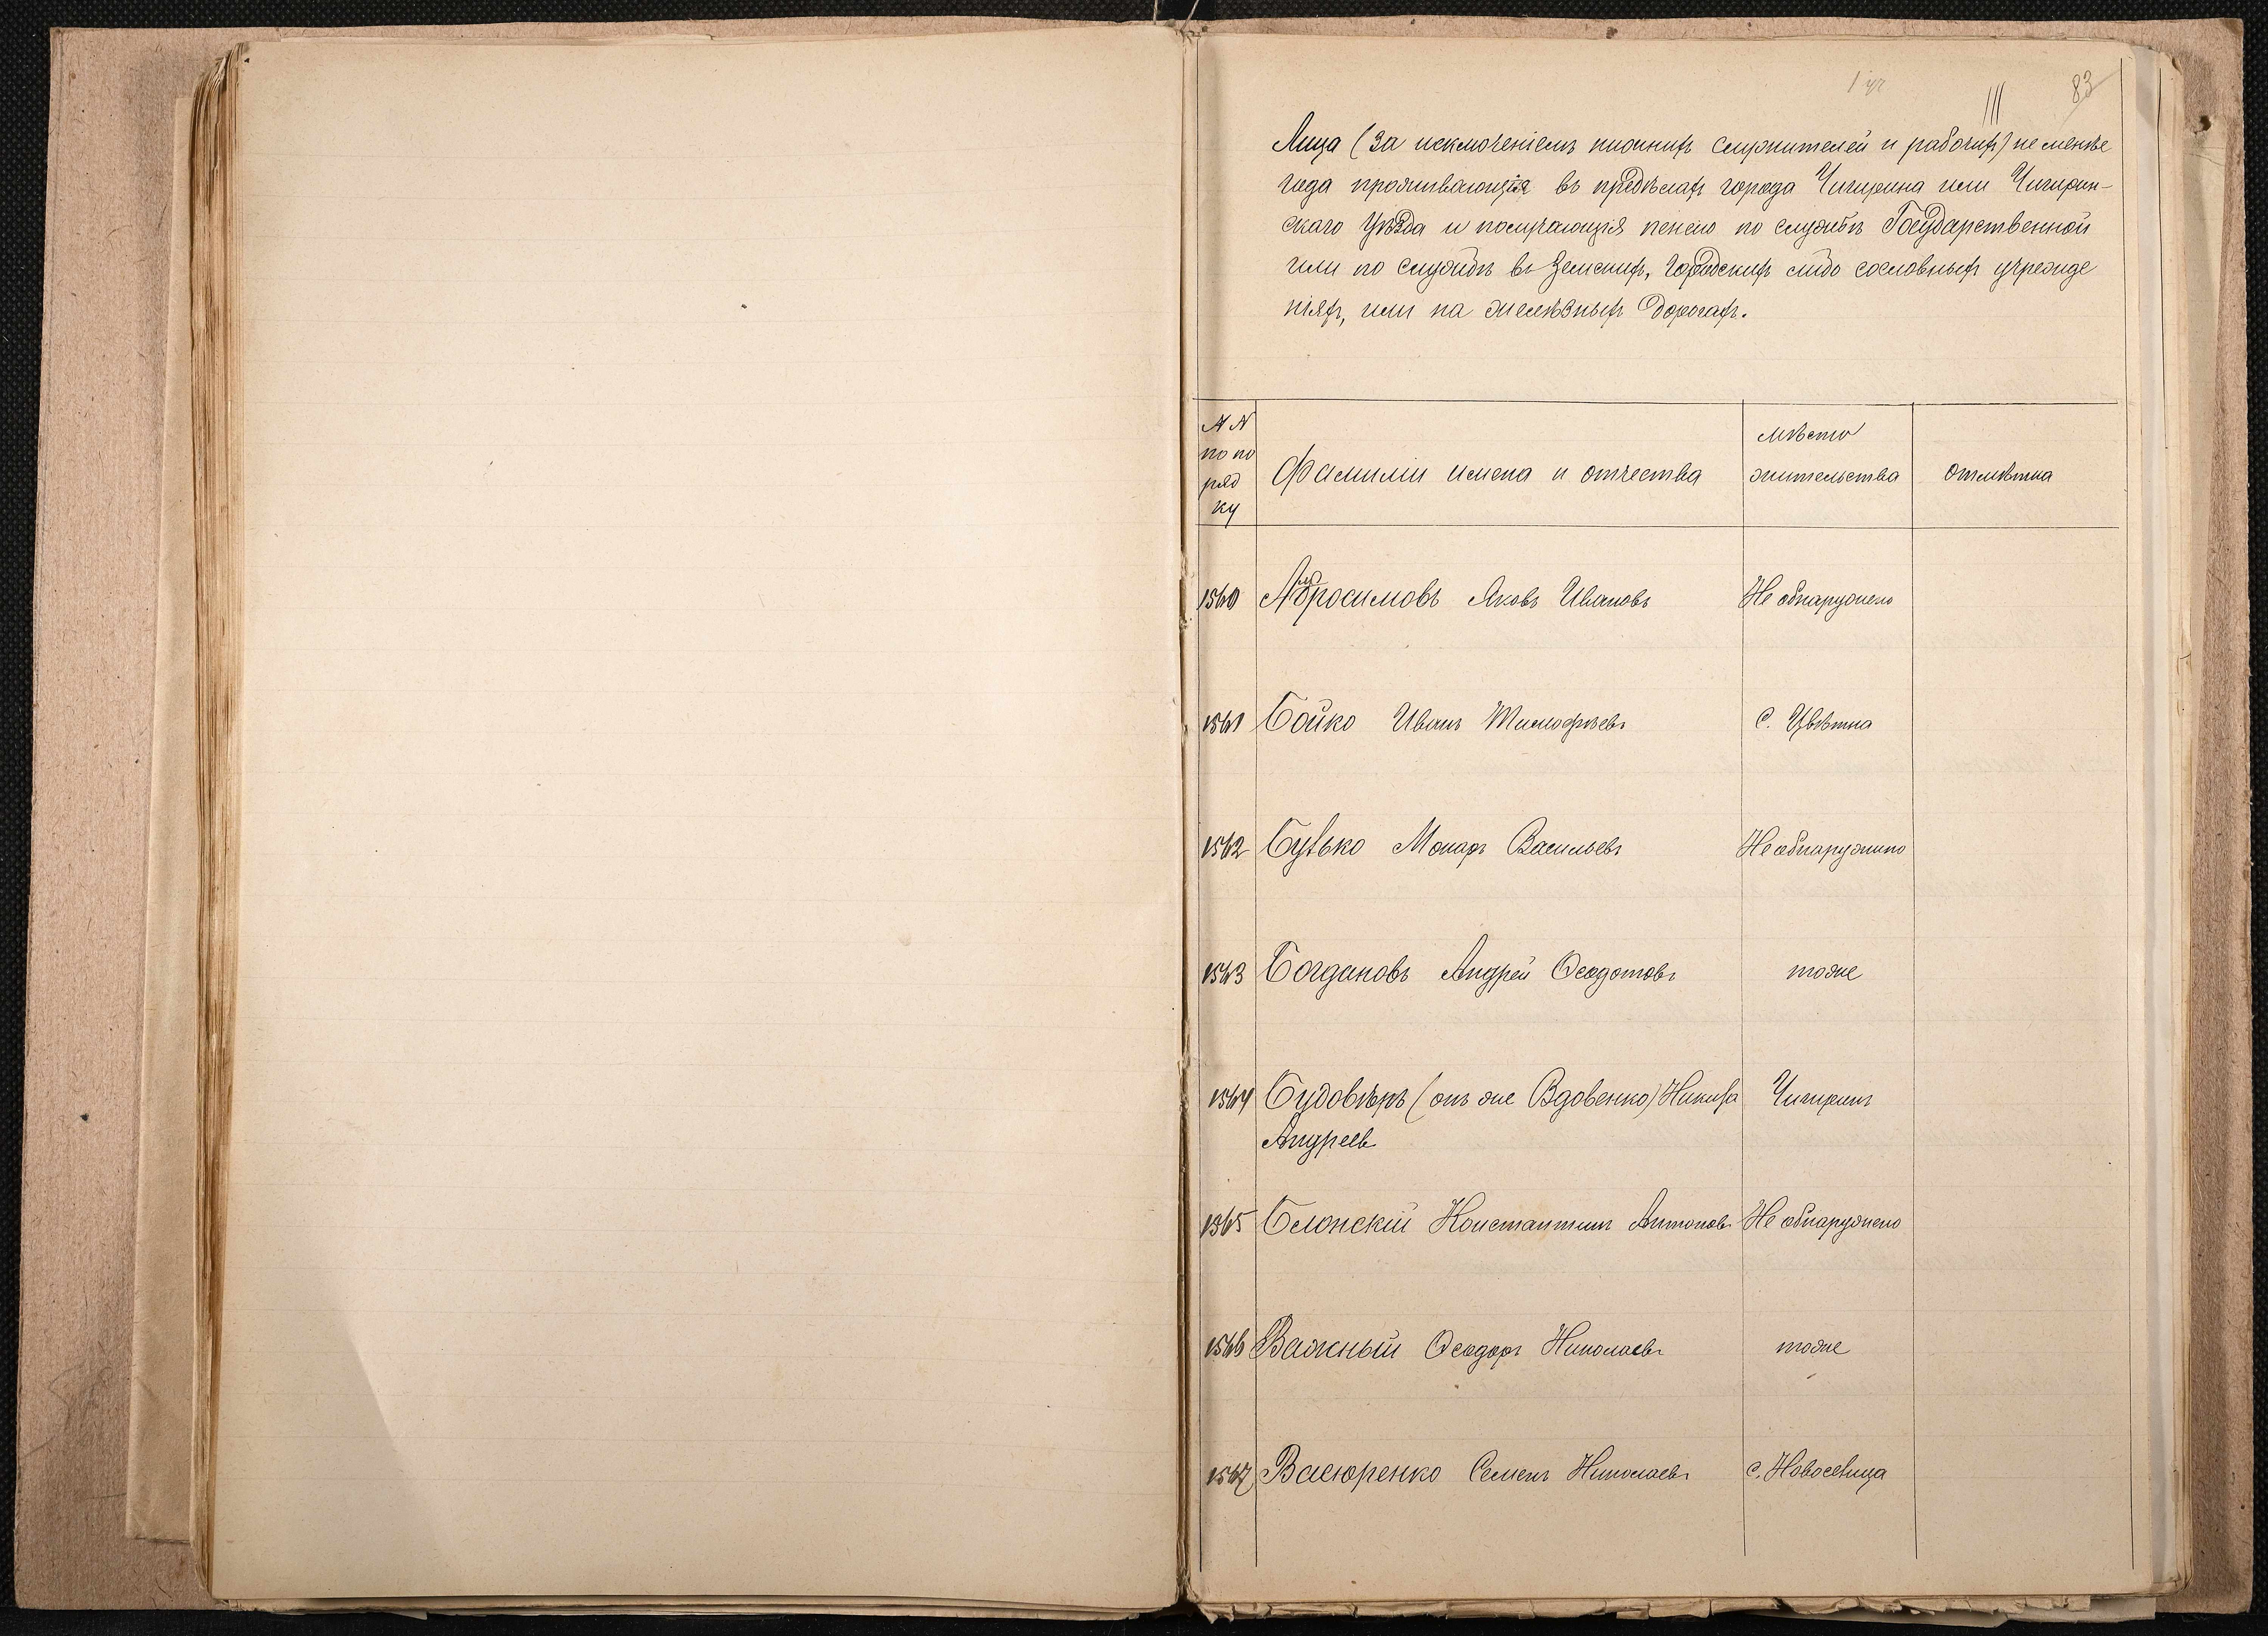 83
III
Лица (за исключеніемъ низшихъ служителей и рабочихъ) не менѣе
года проживающія въ предѣлахъ города Чигирина или Чигирин-
скаго Уѣзда и получающія пенсію по службѣ Государственной
или по службѣ въ Земскихъ, Городскихъ либо сословныхъ учрежде
ніяхъ, или на желѣзныхъ дорогахъ.
№№ по поряд ку
Фамиліи имена и отчества
мѣсто жительства
отмѣтка
1560 Абросимовъ Яковъ Ивановъ Не обнаружено
1561 Бойко Иванъ Тимофѣевъ с. Цвѣтна
1562 Макаръ Васильевъ Не обнаружено
1563 Богдановъ Андрей Ѳеодотовъ тоже
1564 (онъ же Вдовенко) Чигиринъ
Андреев
1565 Блонскій Константинъ Антоновъ Не обнаружено
1566 Важный Ѳеодоръ Николаевъ тоже
1567 Васюренко Семенъ Николаевъ с. Новоселица